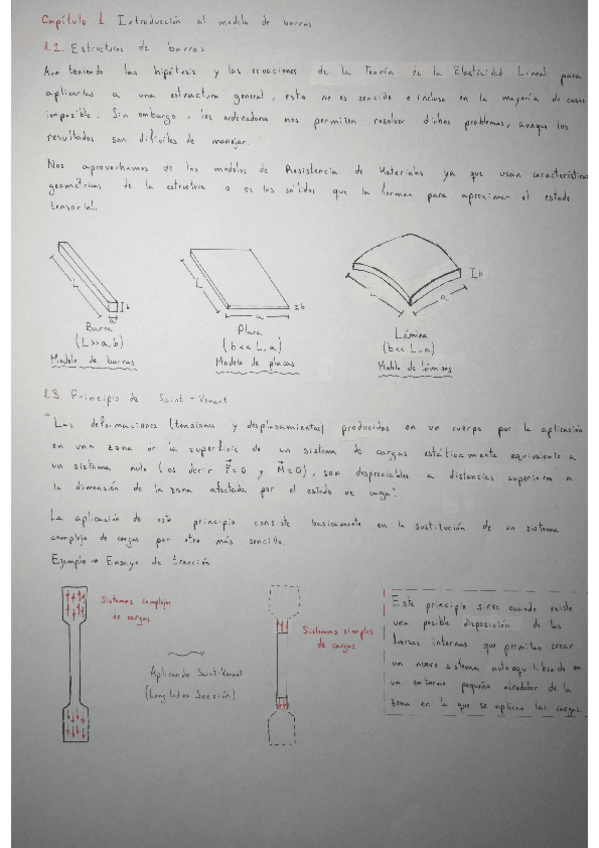 Capítulo 1. Introducción al modelo de barras
1.2. Estructuras de barras
Aun teniendo las hipótesis y las ecuaciones de la Teoría de la Elasticidad Lineal para
aplicarlas a una estructura general, esto no es sencillo e incluso en la mayoría de casos
imposible. Sin embargo, los ordenadores nos permiten resolver dichos problemas, aunque los
resultados son difíciles de manejar.
Nos aprovechamos de los modelos de Resistencia de Materiales ya que usan características
geométricas de la estructura o de los sólidos que la forman para aproximar el estado
tensorial.
L b a
L a b
L a b
Barra
(L>>a,b)
Modelo de barras
Placa
(b<<L,a)
Modelo de placas
Lámina
(b<<L,a)
Modelo de láminas
1.3. Principio de Saint-Venant
"Las deformaciones (tensiones y desplazamientos) producidos en un cuerpo por la aplicación
en una zona de la superficie de un sistema de cargas estáticamente equivalente a
un sistema nulo (es decir F=0 y M=0), son despreciables a distancias superiores a
la dimensión de la zona afectada por el estado de carga".
La aplicación de este principio consiste basicamente en la sustitución de un sistema
complejo de cargas por otro más sencillo.
Ejemplo → Ensayo de tracción
Sistemas complejos
de cargas
Aplicando Saint-Venant
(Longitud>> Sección)
Sistemas simples
de cargas
Este principio sirve cuando existe
una posible disposición de las
fuerzas internas que permitan crear
un nuevo sistema autoequilibrado en
un entorno pequeño alrededor de la
zona en la que se aplican las cargas.